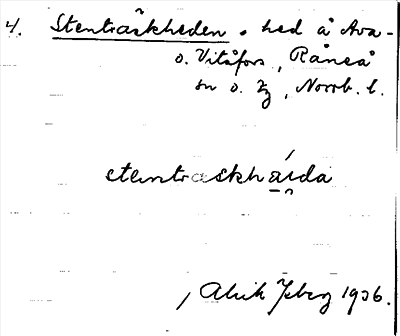 4. Stenträskheden, hed å Ava-
o. Vitåfors, Råneå
sn o. tg, Norrb. l.
stentraskhȧida
Alrik Isberg 1936.